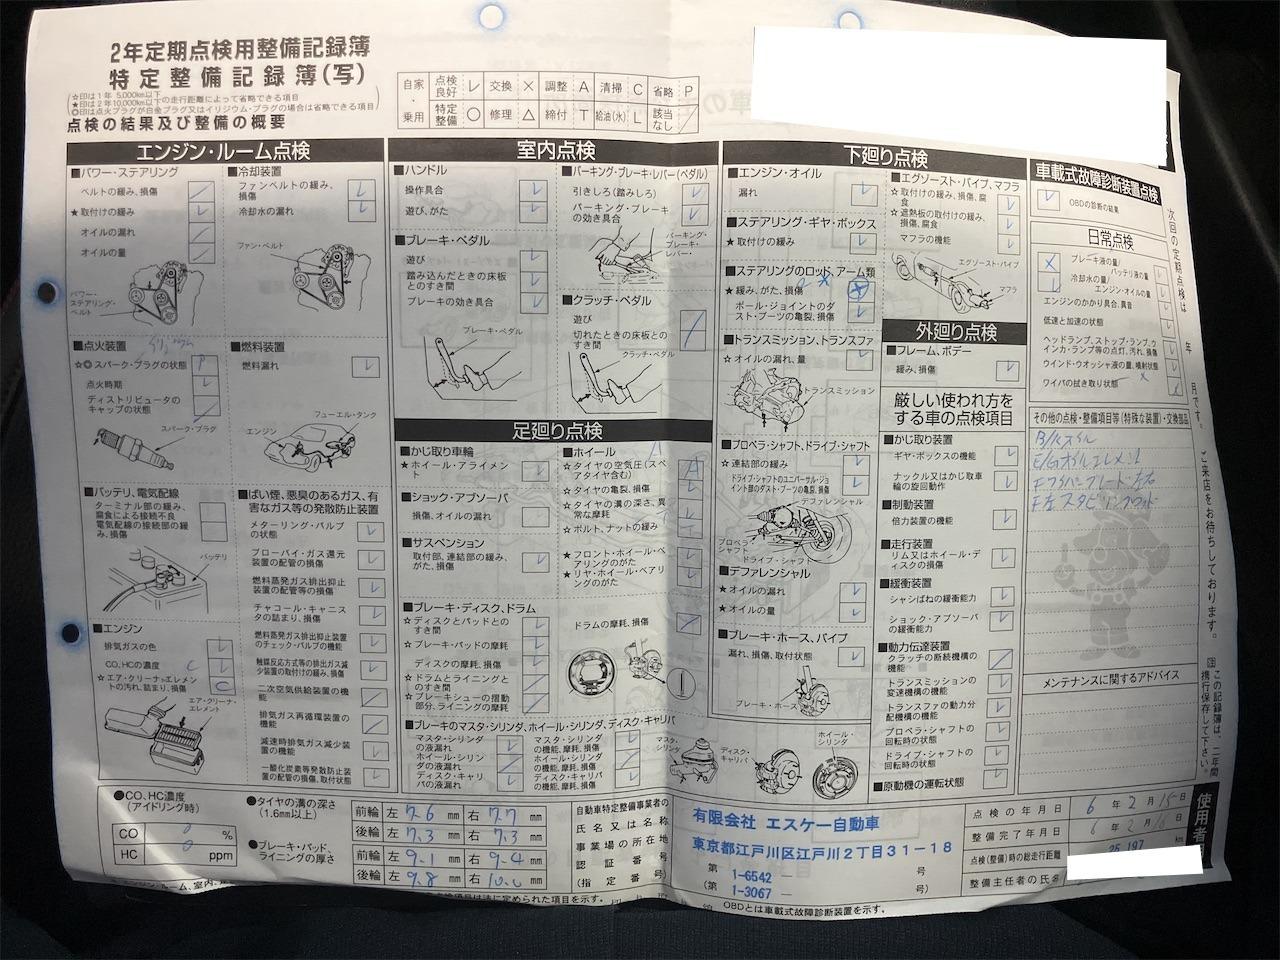 2年定期点検用整備記録簿
特定整備記録簿(写)
☆印は1年 5,000km以下
★印は2年10,000km以下の走行距離によって省略できる項目
◎印は点火プラグが白金プラグ又はイリジウム・プラグの場合は省略できる項目
点検の結果及び整備の概要
自家・乗用
点検良好 レ 交換 × 調整 A 清掃 C 省略 P
特定整備 ○ 修理 △ 締付 T 給油(水) L 該当なし ／
エンジン・ルーム点検
■パワー・ステアリング
ベルトの緩み、損傷
★取付けの緩み
オイルの漏れ
オイルの量
パワー・ステアリング・ベルト
■冷却装置
ファンベルトの緩み、損傷
冷却水の漏れ
ファン・ベルト
■点火装置
☆◎スパーク・プラグの状態 P
点火時期
ディストリビュータのキャップの状態
スパーク・プラグ
■燃料装置
燃料漏れ
フューエル・タンク
エンジン
■バッテリ、電気配線
ターミナル部の緩み、腐食による接続不良
電気配線の接続部の緩み、損傷
バッテリ
■ばい煙、悪臭のあるガス、有害なガス等の発散防止装置
メターリング・バルブの状態
ブローバイ・ガス還元装置の配管の損傷
燃料蒸発ガス排出抑止装置の配管等の損傷
チャコール・キャニスタの詰まり、損傷
燃料蒸発ガス排出抑止装置のチェック・バルブの機能
触媒反応方式等の排出ガス減少装置の取付けの緩み、損傷
二次空気供給装置の機能
排気ガス再循環装置の機能
減速時排気ガス減少装置の機能
一酸化炭素等発散防止装置の配管の損傷、取付状態
■エンジン
排気ガスの色
CO、HCの濃度
☆エア・クリーナ・エレメントの汚れ、詰まり、損傷 C
エア・クリーナ・エレメント
室内点検
■ハンドル
操作具合
遊び、がた
■ブレーキ・ペダル
遊び
踏み込んだときの床板とのすき間
ブレーキの効き具合
ブレーキ・ペダル
■パーキング・ブレーキ・レバー(ペダル)
引きしろ(踏みしろ)
パーキング・ブレーキの効き具合
パーキング・ブレーキ・レバー
■クラッチ・ペダル
遊び
切れたときの床板とのすき間
クラッチ・ペダル
足廻り点検
■かじ取り車輪
★ホイール・アライメント
■ショック・アブソーバ
損傷、オイルの漏れ
■サスペンション
取付部、連結部の緩み、がた、損傷
■ブレーキ・ディスク、ドラム
☆ディスクとパッドとのすき間
☆ブレーキ・パッドの摩耗
ディスクの摩耗、損傷
☆ドラムとライニングとのすき間
☆ブレーキシューの摺動部分、ライニングの摩耗
ドラムの摩耗、損傷
■ホイール
☆タイヤの空気圧(スペアタイヤ含む) A
☆タイヤの亀裂、損傷
☆タイヤの溝の深さ、異常な摩耗
☆ボルト、ナットの緩み
★フロント・ホイール・ベアリングのがた
★リヤ・ホイール・ベアリングのがた
■ブレーキのマスタ・シリンダ、ホイール・シリンダ、ディスク・キャリパ
マスタ・シリンダの液漏れ
ホイール・シリンダの液漏れ
ディスク・キャリパの液漏れ
マスタ・シリンダの機能、摩耗、損傷
ホイール・シリンダの機能、摩耗、損傷
ディスク・キャリパの機能、摩耗、損傷
マスタ・シリンダ
ディスク・キャリパ
ホイール・シリンダ
下廻り点検
■エンジン・オイル
漏れ
■ステアリング・ギヤ・ボックス
★取付けの緩み
■ステアリングのロッド、アーム類
★緩み、がた、損傷
ボール・ジョイントのダスト・ブーツの亀裂、損傷
■トランスミッション、トランスファ
☆オイルの漏れ、量
トランスミッション
■プロペラ・シャフト、ドライブ・シャフト
☆連結部の緩み
ドライブ・シャフトのユニバーサル・ジョイント部のダスト・ブーツの亀裂、損傷
デファレンシャル
プロペラ・シャフト
ドライブ・シャフト
■デファレンシャル
★オイルの漏れ
★オイルの量
■ブレーキ・ホース、パイプ
漏れ、損傷、取付状態
ブレーキ・ホース
■エグゾースト・パイプ、マフラ
☆取付けの緩み、損傷、腐食
☆遮熱板の取付けの緩み、損傷、腐食
マフラの機能
エグゾースト・パイプ
マフラ
外廻り点検
■フレーム、ボデー
緩み、損傷
厳しい使われ方をする車の点検項目
■かじ取り装置
ギヤ・ボックスの機能
ナックル又はかじ取車輪の旋回動作
■制動装置
倍力装置の機能
■走行装置
リム又はホイール・ディスクの損傷
■緩衝装置
シャシばねの緩衝能力
ショック・アブソーバの緩衝能力
■動力伝達装置
クラッチの断続機構の機能
トランスミッションの変速機構の機能
トランスファの動力分配機構の機能
プロペラ・シャフトの回転時の状態
ドライブ・シャフトの回転時の状態
■原動機の運転状態
車載式故障診断装置点検
OBDの診断の結果
日常点検
ブレーキ液の量
バッテリ液の量
冷却水の量
エンジン・オイルの量
エンジンのかかり具合、異音
低速と加速の状態
ヘッドランプ、ストップ・ランプ、ウインカ・ランプ等の点灯、汚れ、損傷
ウインド・ウオッシャ液の量、噴射状態
ワイパの拭き取り状態
その他の点検・整備項目等(特殊な装置)・交換部品
B/Kオイル
E/Gオイルエレメント
メンテナンスに関するアドバイス
次回の定期点検は 年 月です。ご来店をお待ちしております。
注 この記録簿は、二年間携行保存して下さい。
使用者
●CO、HC濃度(アイドリング時)
CO 0 %
HC 0 ppm
●タイヤの溝の深さ(1.6mm以上)
●ブレーキ・パッド、ライニングの厚さ
前輪 左 7.6 mm 右 7.7 mm
後輪 左 7.3 mm 右 7.3 mm
前輪 左 9.1 mm 右 9.4 mm
後輪 左 9.8 mm 右 10.0 mm
自動車特定整備事業者の氏名又は名称
事業場の所在地
認証番号
(指定番号)
有限会社 エスケー自動車
東京都江戸川区江戸川2丁目31-18
第 1-6542 号
(第 1-3067 号)
OBDとは車載式故障診断装置を示す。
点検の年月日 6年2月15日
整備完了年月日 6年2月16日
点検(整備)時の総走行距離 25,197 km
整備主任者の氏名